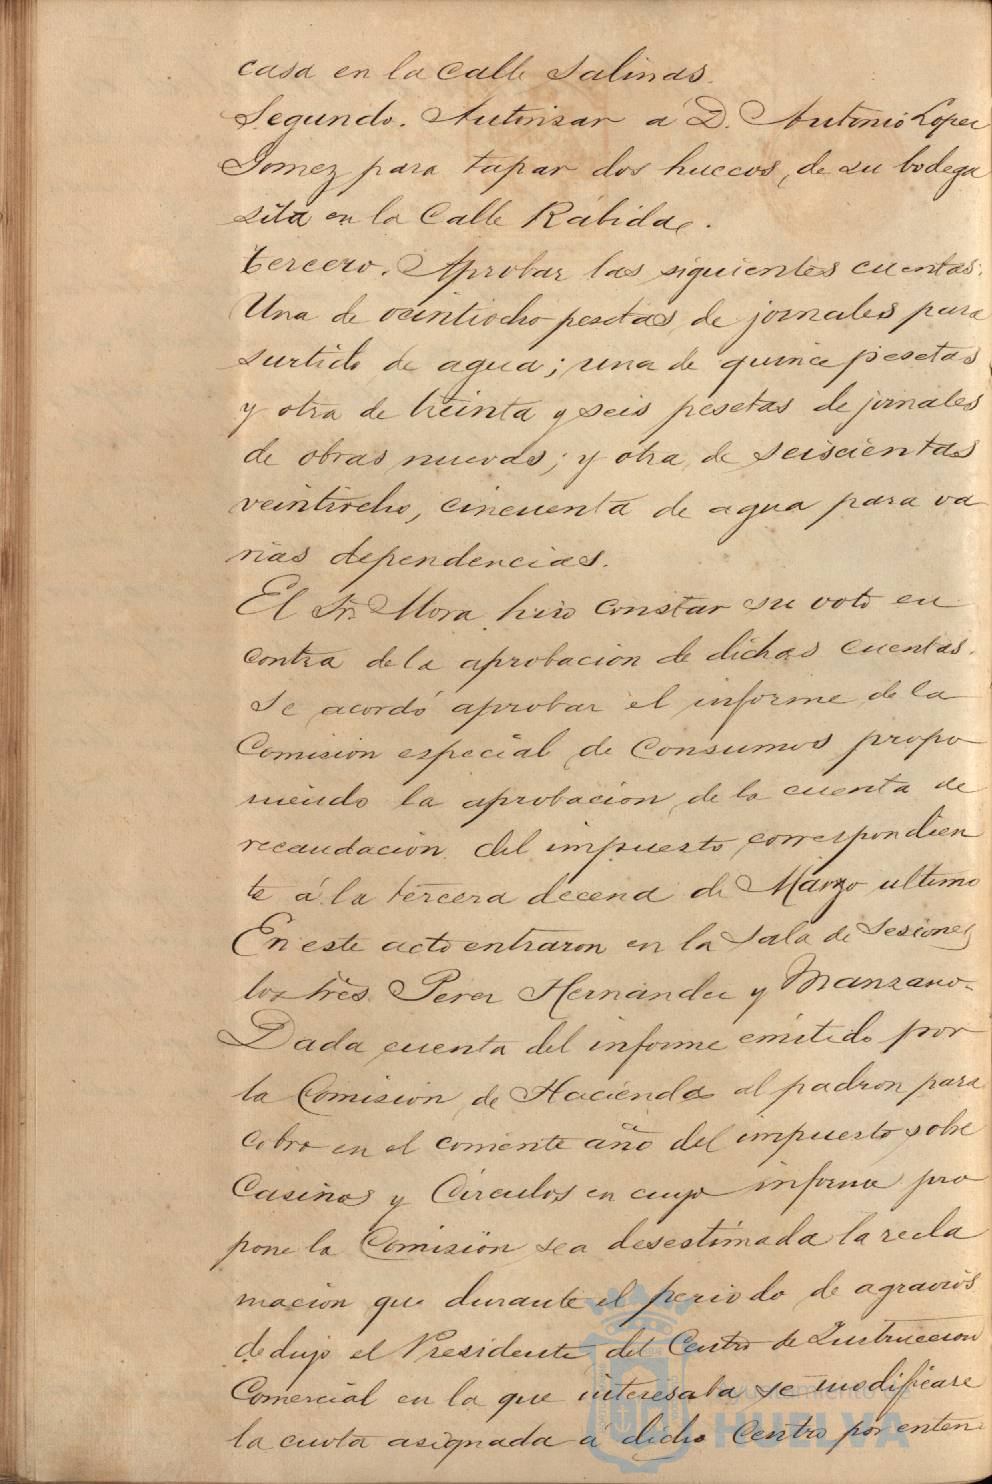 casa en la calle Salinas.
Segundo. Autorisar a D. Antonio Lopez
Gomez para tapar dos huecos, de su bodega
sita en la Calle Rábida.
tercero. Aprobar las siguientes cuentas:
Una de veintiocho pesetas, de jornales para
surtido de agua; una de quince pesetas
y otra de treinta y seis pesetas de jornales
de obras nuevas; y otra, de seiscientas
veintiocho, cincuenta de agua para va
rias dependencias.
El Sr. Mora hiso constar su voto en
contra de la aprobacion de dichas cuentas.
Se acordó aprobar el informe de la
Comision especial de Consumos propo
niendo la aprobacion de la cuenta de
recaudacion del impuesto correspondien
te á la tercera decena de Marzo ultimo
En este acto entraron en la Sala de Sesiones
los Sres. Perez Hernandez y Manzano.
Dada cuenta del informe emitido por
la Comision de Hacienda al padron para
cobro en el corriente año del impuesto sobre
Casinos y Círculos en cuyo informe pro
pone la Comision sea desestimada la recla
macion que durante el periodo de agravios
dedujo el Presidente del Centro de Instruccion
Comercial en la que interesaba se modificase
la cuota asignada a dicho Centro por enten
Ayuntamiento de
HUELVA